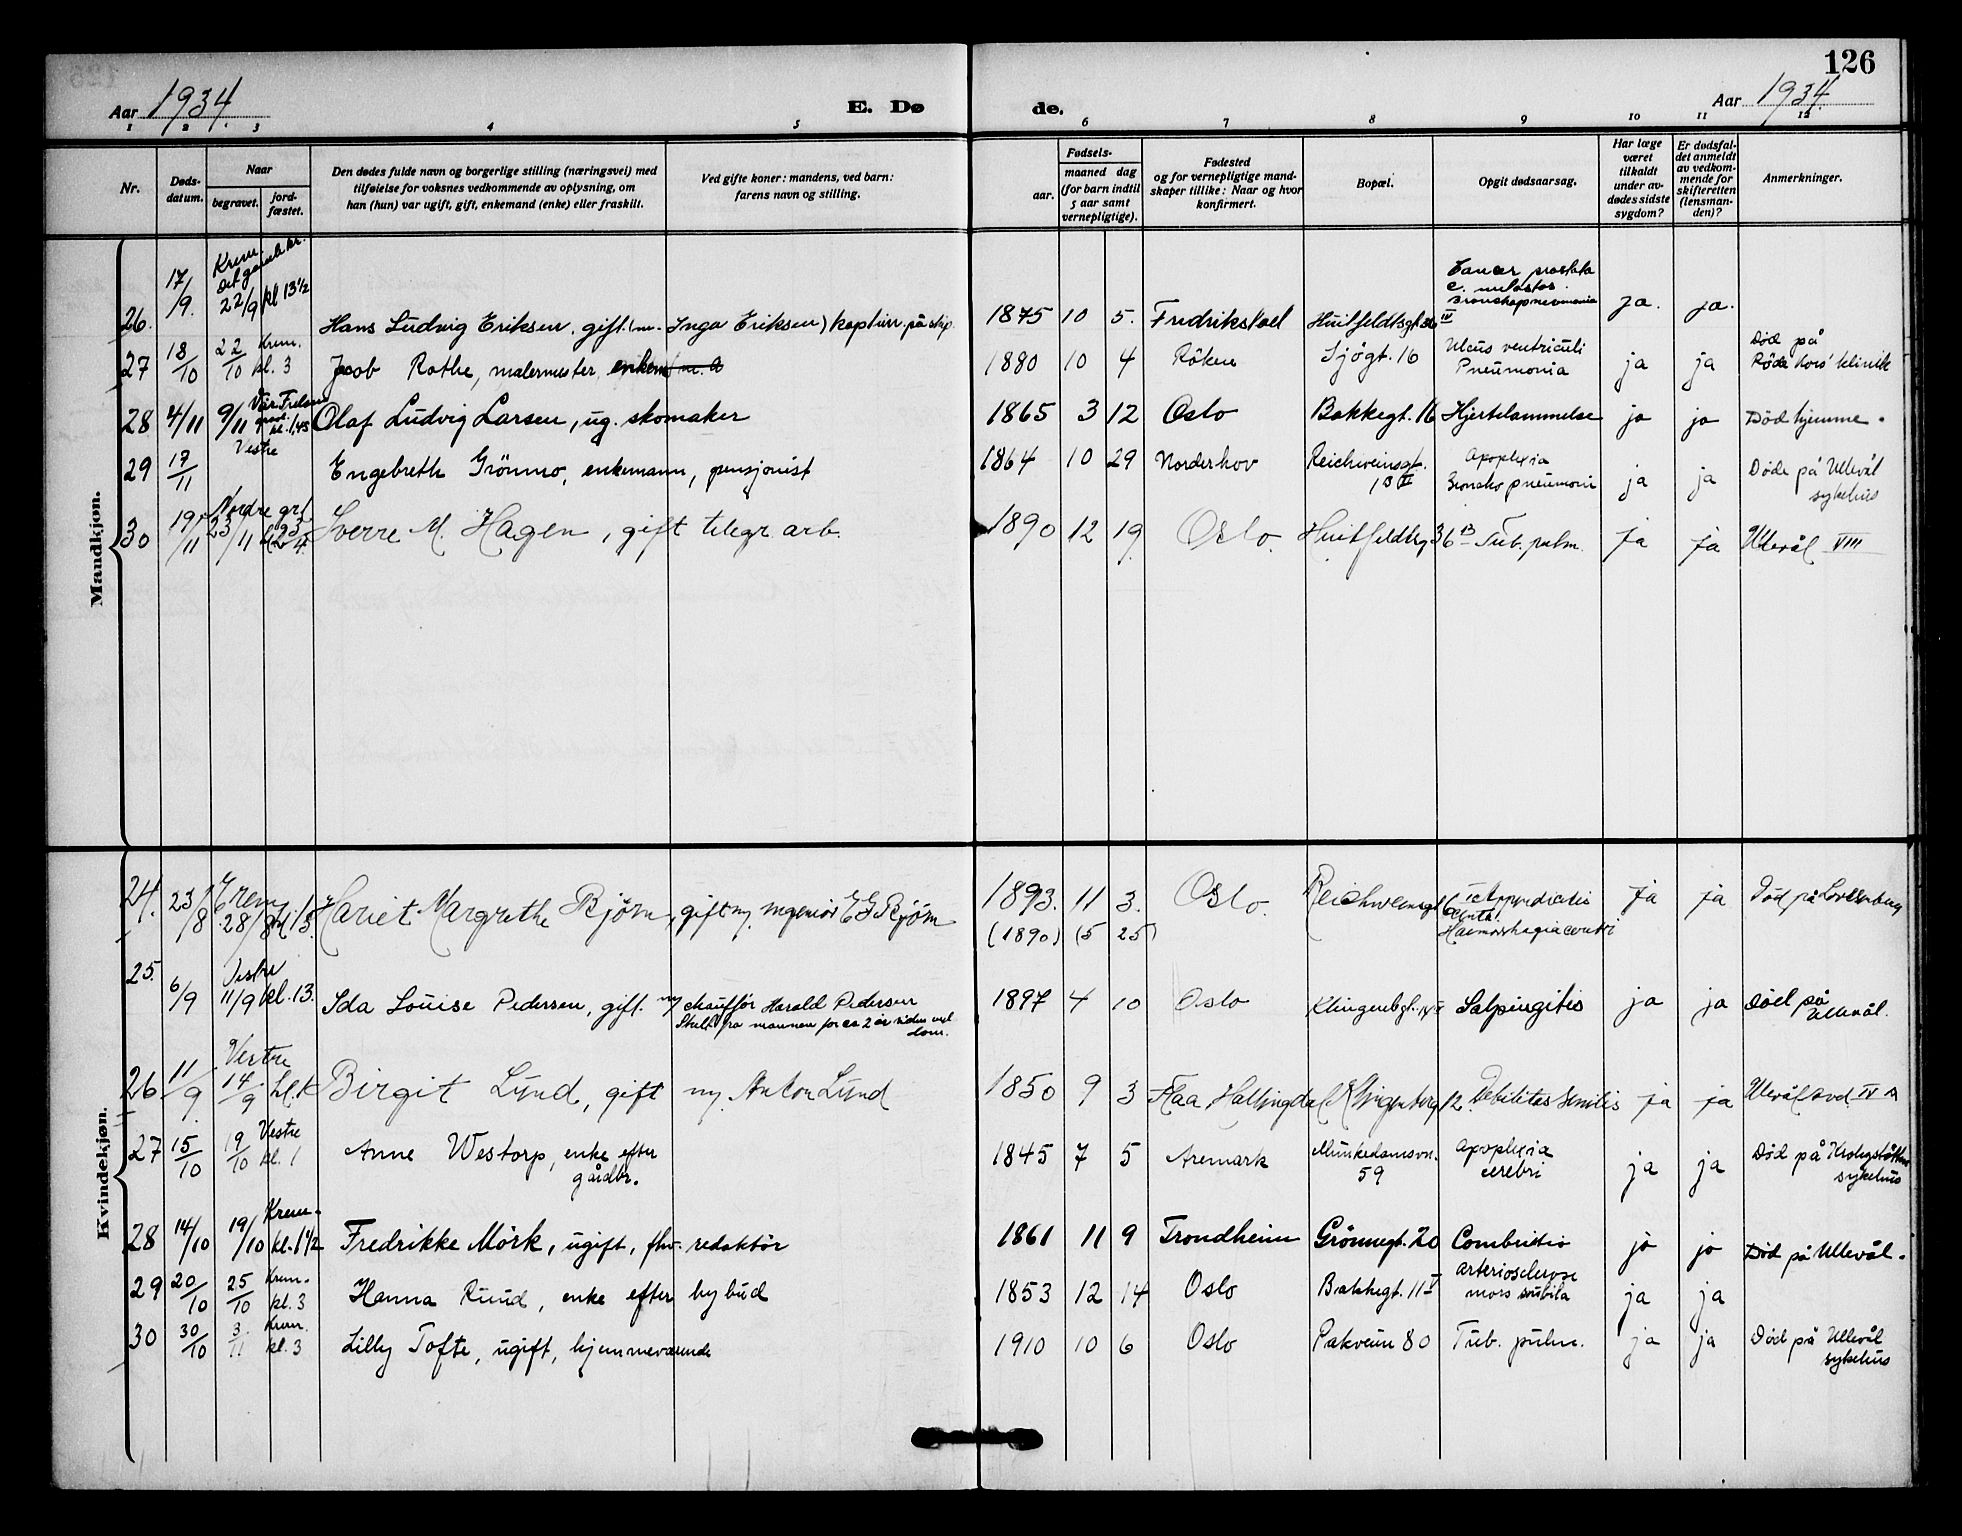 126
Aar 1934 E. Dø de. Aar 1934
1 2 3 4 5 6 7 8 9 10 11 12
Nr.
Døds-
datum.
Naar
begravet.
jord-
fæstet.
Den dødes fulde navn og borgerlige stilling (næringsvei) med
tilføielse for voksnes vedkommende av oplysning, om
han (hun) var ugift, gift, enkemand (enke) eller fraskilt.
Ved gifte koner: mandens, ved barn:
farens navn og stilling.
Fødsels-
aar.
maaned dag
(for barn indtil
5 aar samt
vernepligtige).
Fødested
og for vernepligtige mand-
skaper tillike: Naar og hvor
konfirmert.
Bopæl.
Opgit dødsaarsag.
Har læge
været
tilkaldt
under av-
dødes sidste
sygdom?
Er dødsfal-
det anmeldt
av vedkom-
mende for
skifteretten
(lensman-
den)?
Anmerkninger.
Mandkjøn.
26. 17/9. Krem. 22/9 kl 13½ Hans Ludvig Eriksen, gift. Inga Eriksen) 1875 10 5. Fredrikstad Huitfeldtsgt. Cancer prostata Bronchopneumonia ja. ja.
27 18/10 22/10 Krem. kl. 3 Jacob Rothe, malermester, 1880 10 4 Röken Sjögt. 16 Ulcus ventriculi Pneumonia ja ja Död på Röde kors' klinik
28 4/11 9/11 Vår Frelsers Olaf Ludvig Larsen, ug. skomaker 1865 3 12 Oslo Bakkegt. 16 Hjertelammelse ja ja Död hjemme.
29 17/11 Vestre Engebreth Grönmo, enkemann, pensjonist 1864 10 29 Norderhov Reichweinsgt. 1B II Apoplexia Bronchopneumoni ja ja Döde på Ullevål sykehus
30 19/11 Nordre grl. 23/11 Sverre M. Hagen, gift telegr. arb. 1890 12 19. Oslo. Huitfeldtsg 36 B Tub. pulm. ja ja Ulevål VIII
Kvindekjøn.
24. 23/8 Krem 28/8 kl 13. Hariet Margrethe Bjørn, gift m. ingeniør E G Bjørn 1893. 11 3. Oslo. Reichweinsgt Appendicitis ja ja Död på Lovisenberg
(1890) (5 25)
25. 6/9 Vestre 11/9 kl. 13. Ida Louise Pedersen, gift. m/ chauffør Harald Pedersen 1897 4 10 Oslo Klingenbgt. Salpingitis ja ja Död på Ullevål.
Skilt fra mannen for ca 2 år siden ved dom.
26 11/9. Vestre 14/9 kl. 1 Birgit Lund, gift m. Anton Lund 1850 9 3 Flaa Hallingdal Klingenberg 12. Debilitas senilis ja ja Ulevål avd IV
27 15/10 19/10 Vestre kl. 1 Anne Westorp, enke efter gårdbr. 1845 7 5 Aremark Munkedamsvn. 59 Apoplexia cerebri ja ja Död på Krohgstötten sykehus
28 14/10 19/10 Krem. kl. 1½ Fredrikke Mörk, ugift, fhv. redaktör 1861 11 9 Trondheim Grönnegt. 20 Combustio ja ja Död på Ullevål.
29 20/10 25/10 Krem. kl. 3 Hanna Ruud, enke efter bybud 1853 12 14 Oslo Bakkegt. 11 V Arteriosclerose mors subita ja ja
30 30/10 3/11 Krem. kl. 3 Lilly Tofte, ugift, hjemmeværende 1910 10 6 Oslo Parkveien 80 Tub. pulm. ja ja Död på Ullevål sykehus